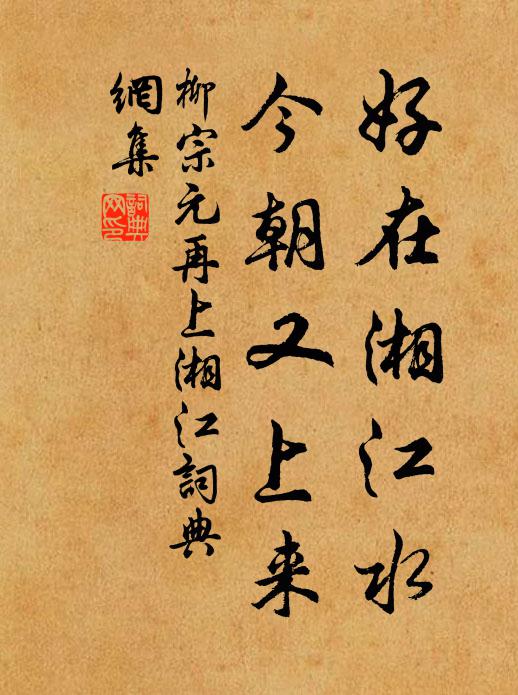 好在湘江水
今朝又上来
柳宗元再上湘江詞典
網集
詞典
网印